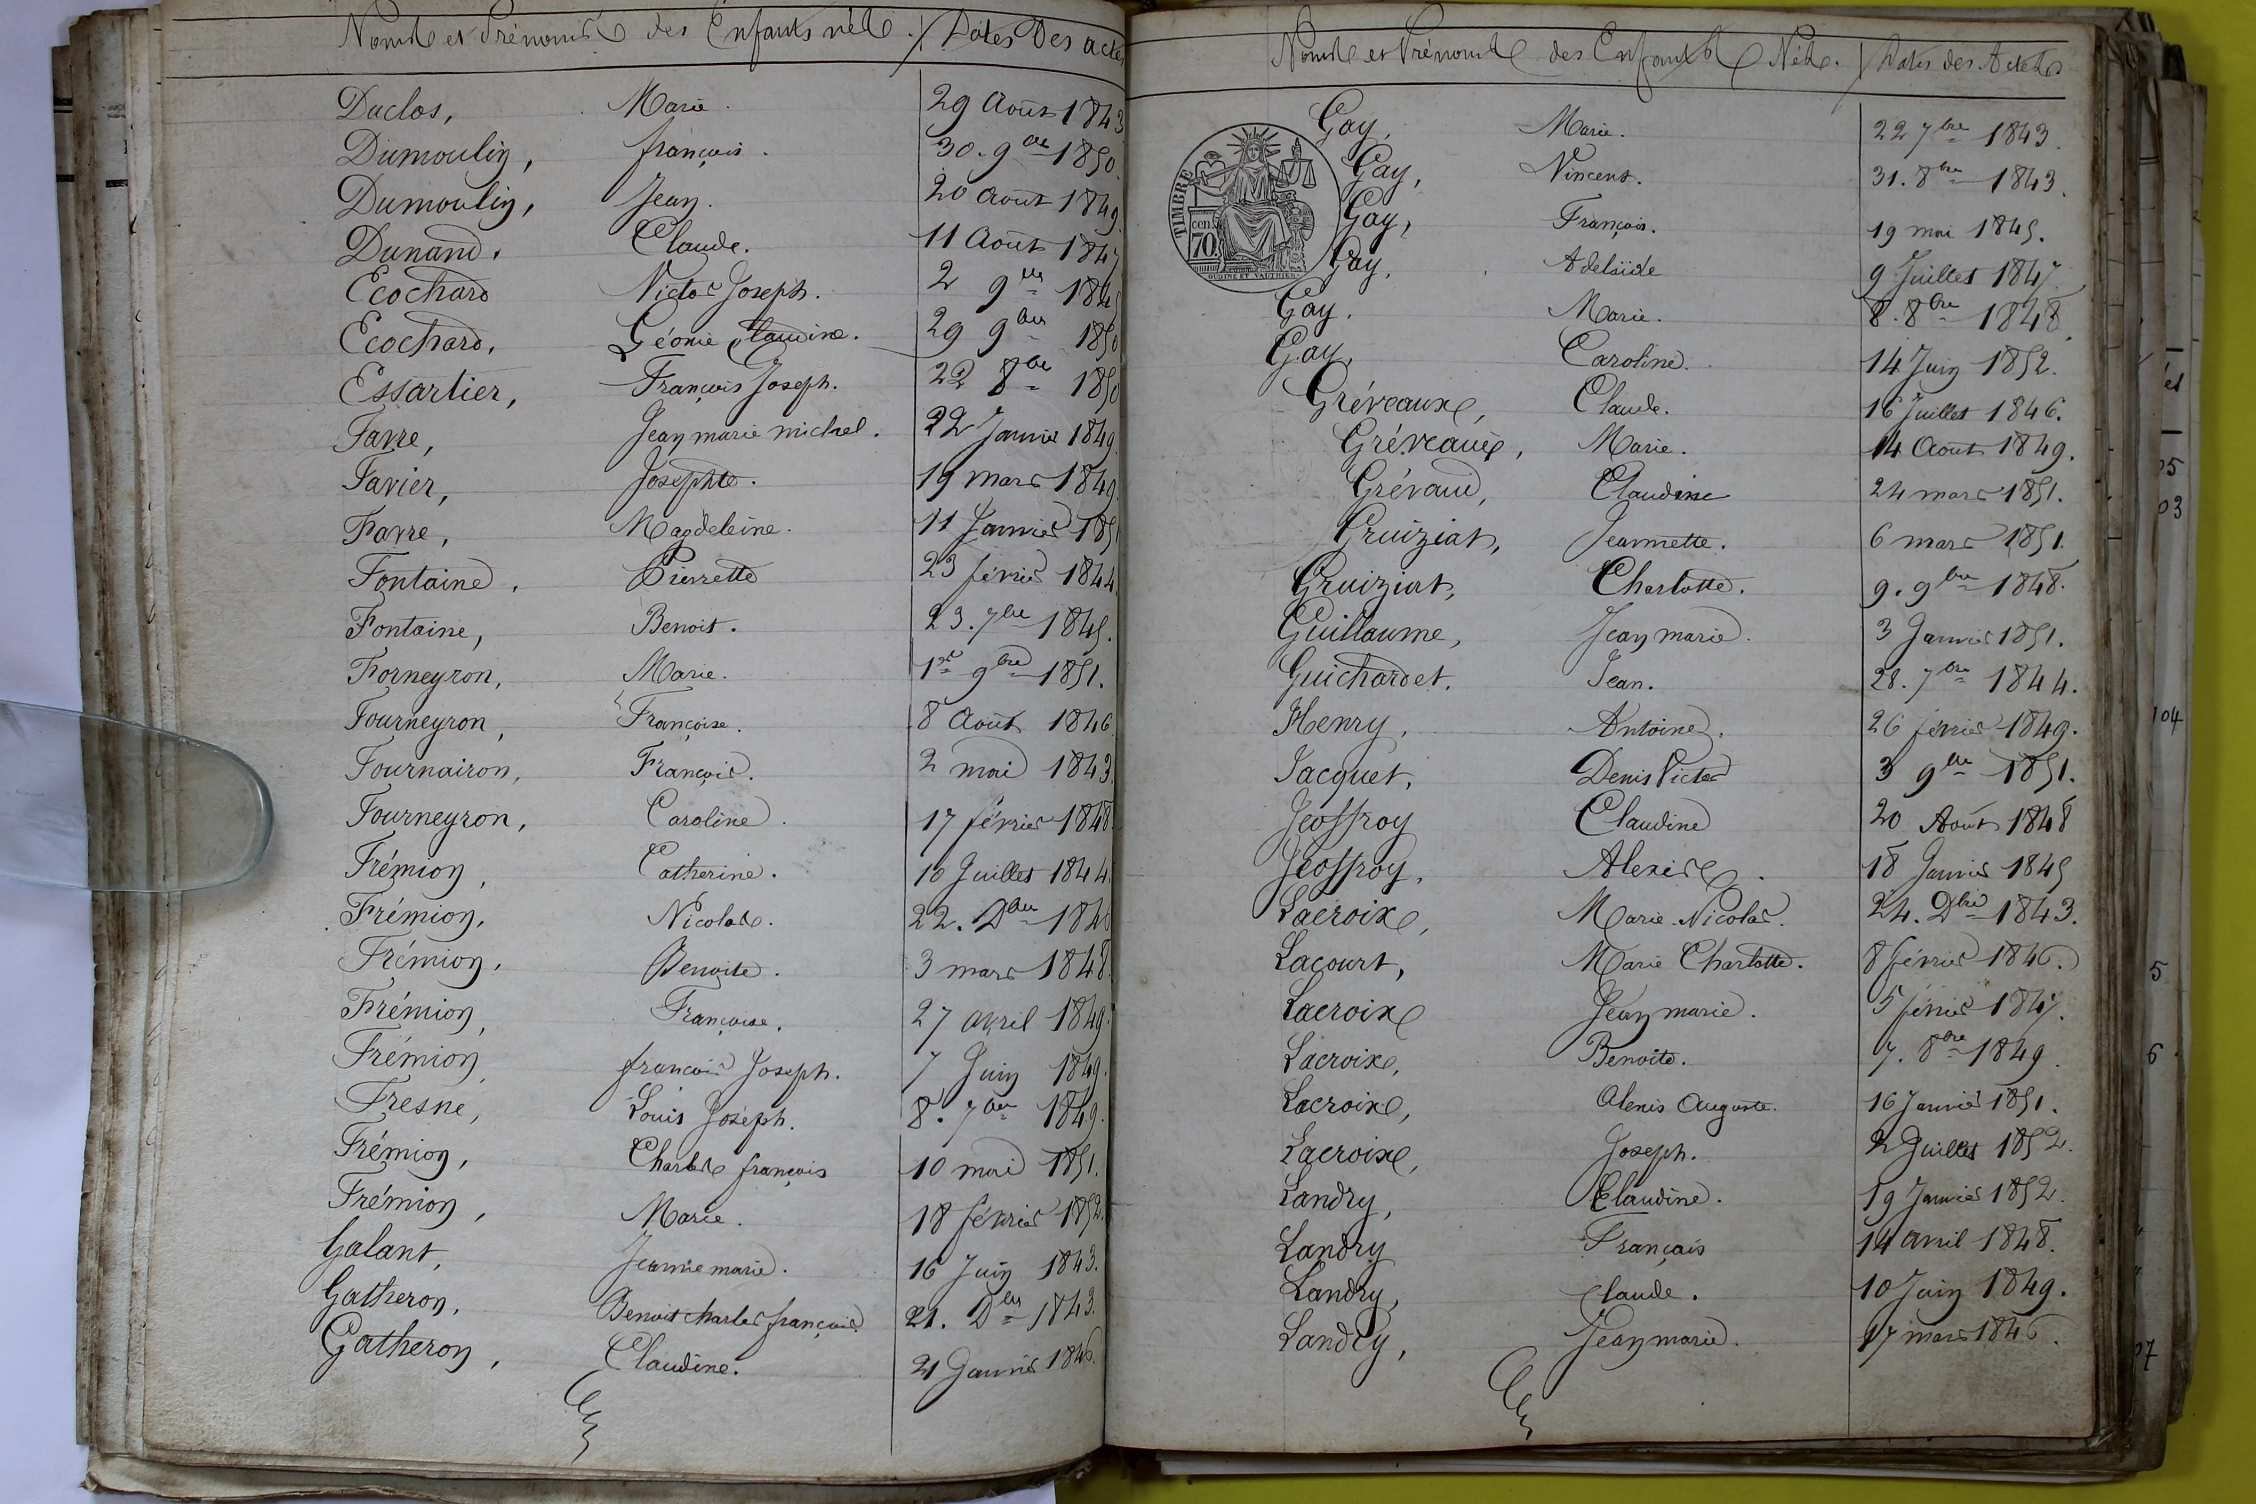 Noms et Prénoms des Enfants nés. Dates des actes
Duclos, Marie. 29 Août 1843
Dumoulin, françois. 30. 9bre 1850.
Dumoulin, Jean. 20 Août 1849.
Dunand. Claude. 11 Août 1847
Ecochard Victor Joseph. 2 9bre 1845
Ecochard, Léonie Claudine. 29 9bre 1850
Essartier, François Joseph. 22 8bre 1850
Favre, Jean marie michel. 22 Janvier 1849.
Favier, Josephte. 19 mars 1849.
Favre, Magdeleine. 11 Janvier 1851
Fontaine, Pierrette 23 février 1844
Fontaine, Benoit. 23. 7bre 1845.
Forneyron, Marie. 1er 9bre 1851.
Fourneyron, Françoise. 8 Août 1846
Fournairon, François. 2 mai 1843
Fourneyron, Caroline. 17 février 1848
Frémion, Catherine. 10 Juillet 1844.
Frémion, Nicolas. 22. Dbre
Frémion, Benoite. 3 mars 1848.
Frémion, Françoise. 27 avril 1849.
Frémion, françois Joseph. 7 Juin 1849.
Fresne, Louis Joseph. 8. 7bre 1849.
Frémion, Charles françois 10 mai 1851.
Frémion, Marie. 18 février 1852.
Galant, Jeanne marie. 16 Juin 1843.
Gatheron, Benoit charles françois. 21. Dbre 1843.
Gatheron, Claudine. 21 Janvier 1846.
Noms et Prénoms des Enfants Nés. Dates des Actes
Gay, Marie. 22 7bre 1843.
Gay, Vincent. 31. 8bre 1843.
Gay, François. 19 mai 1845.
Gay, Adelaïde 9 Juillet 1847.
Gay. Marie. 8. 8bre 1848
Gay, Caroline. 14 Juin 1852.
TIMBRE
70 cen.
OUDINÉ ET VAUTHIER
Gréveaux, Claude. 16 Juillet 1846.
Gréveaux, Marie. 14 Août 1849.
Grévaud, Claudine 24 mars 1851.
Gruiziat, Jeannette. 6 mars 1851.
Gruiziat, Charlotte. 9. 9bre 1848.
Guillaume, Jean marie. 3 Janvier 1851.
Guichardet. Jean. 28. 7bre 1844.
Henry, Antoine. 26 février 1849.
Jacquet, Denis Victor 3 9bre 1851.
Jeoffroy Claudine 20 Août 1848
Jeoffroy, Alexis. 18 Janvier 1845
Lacroix, Marie Nicolas. 24. Dbre 1843.
Lacourt, Marie Charlotte. 8 février 1846.
Lacroix Jean marie. 5 février 1847.
Lacroix, Benoite. 7. 8bre 1849.
Lacroix, Alexis Auguste. 16 Janvier 1851.
Lacroix, Joseph. 2 Juillet 1852.
Landry, Claudine. 19 Janvier 1852.
Landry François 14 avril 1848.
Landry, claude. 10 Juin 1849.
Landry, Jean marie. 17 mars 1846.
et
05
03
104
5
6
07